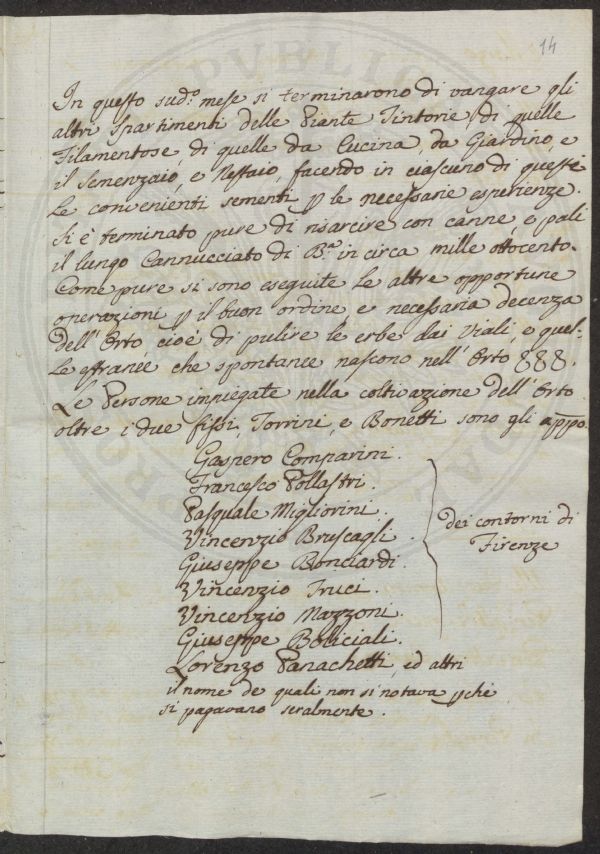 14
In questo sud.º mese si terminarono di vangare gli
altri spartimenti delle Piante Tintorie, di quelle
Filamentose, di quelle da Cucina, da Giardino, e
il Semenzaio, e Nestaio, facendo in ciascuno di queste
le convenienti sementi p le necessarie esperienze.
Si è terminato pure di risarcire con canne, e pali
il lungo Cannucciato di B.ª in circa mille ottocento.
Come pure si sono eseguite le altre opportune
operazioni p il buon ordine e necessaria decenza
dell'Orto cioè di pulire le erbe dai Viali, e quel-
le estranee che spontanee nascono nell'Orto 888.
Le Persone impiegate nella coltivazione dell'Orto
oltre i due fissi, Torrini, e Bonetti sono gli appo.
Gaspero Comparini.
Francesco Pollastri.
Pasquale Migliorini.
Vincenzio Bruscagli.
Giuseppe Bonciardi.
Vincenzio Fruci.
Vincenzio Mazzoni.
Giuseppe Boliciali.
dei contorni di
Firenze
Lorenzo Panachetti, ed altri
il nome de quali non si notava pchè
si pagavano seralmente.
PVBLIC